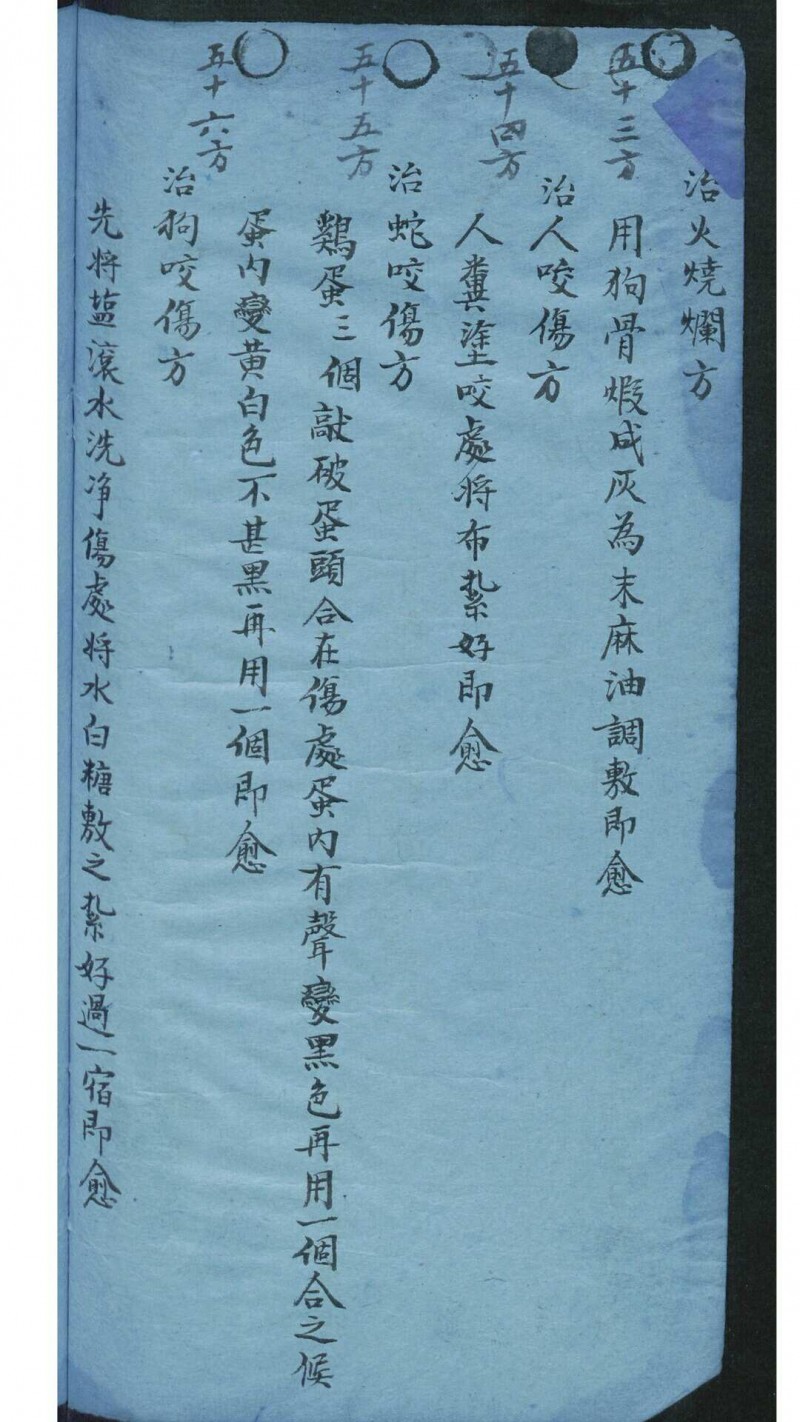 治火燒爛方
五十三方
用狗骨煆成灰為末麻油調敷即愈
治人咬傷方
五十四方
人糞塗咬處将布紮好即愈
治蛇咬傷方
五十五方
鷄蛋三個敲破蛋頭合在傷處蛋内有聲變黑色再用一個合之候
蛋内變黄白色不甚黑再用一個即愈
五十六方
治狗咬傷方
先将盐滾水洗净傷處将水白糖敷之紮好過一宿即愈